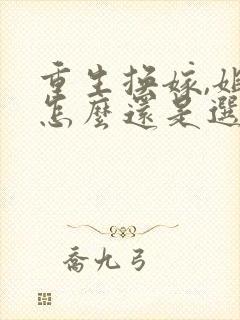 重生换嫁,姐
怎麼還是選
喬九弓